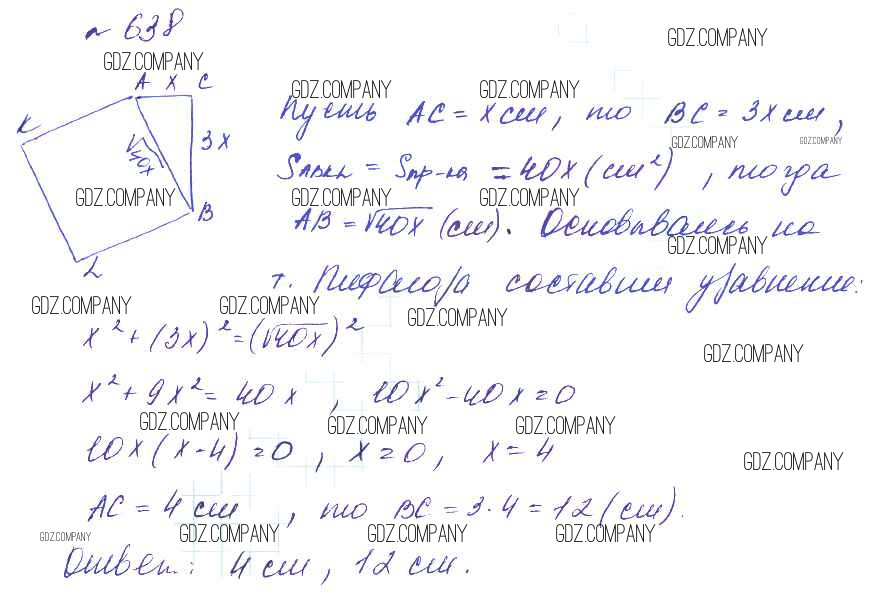 № 638
GDZ.COMPANY GDZ.COMPANY
A x C GDZ.COMPANY GDZ.COMPANY
K Пусть AC = x см, то BC = 3x см,
3x GDZ.COMPANY GDZ.COMPANY
√40x = Sпр-ка = 40x (см²), тогда
GDZ.COMPANY GDZ.COMPANY GDZ.COMPANY
B AB = √40x (см). Основываясь на
GDZ.COMPANY
L т. Пифагора составим уравнение:
GDZ.COMPANY GDZ.COMPANY GDZ.COMPANY
x² + (3x)² = (√40x)²
GDZ.COMPANY
x² + 9x² = 40x , 10x² - 40x = 0
GDZ.COMPANY GDZ.COMPANY GDZ.COMPANY
10x (x - 4) = 0 , x = 0, x = 4
GDZ.COMPANY
AC = 4 см , то BC = 3·4 = 12 (см).
GDZ.COMPANY GDZ.COMPANY GDZ.COMPANY GDZ.COMPANY
Ответ: 4 см, 12 см.